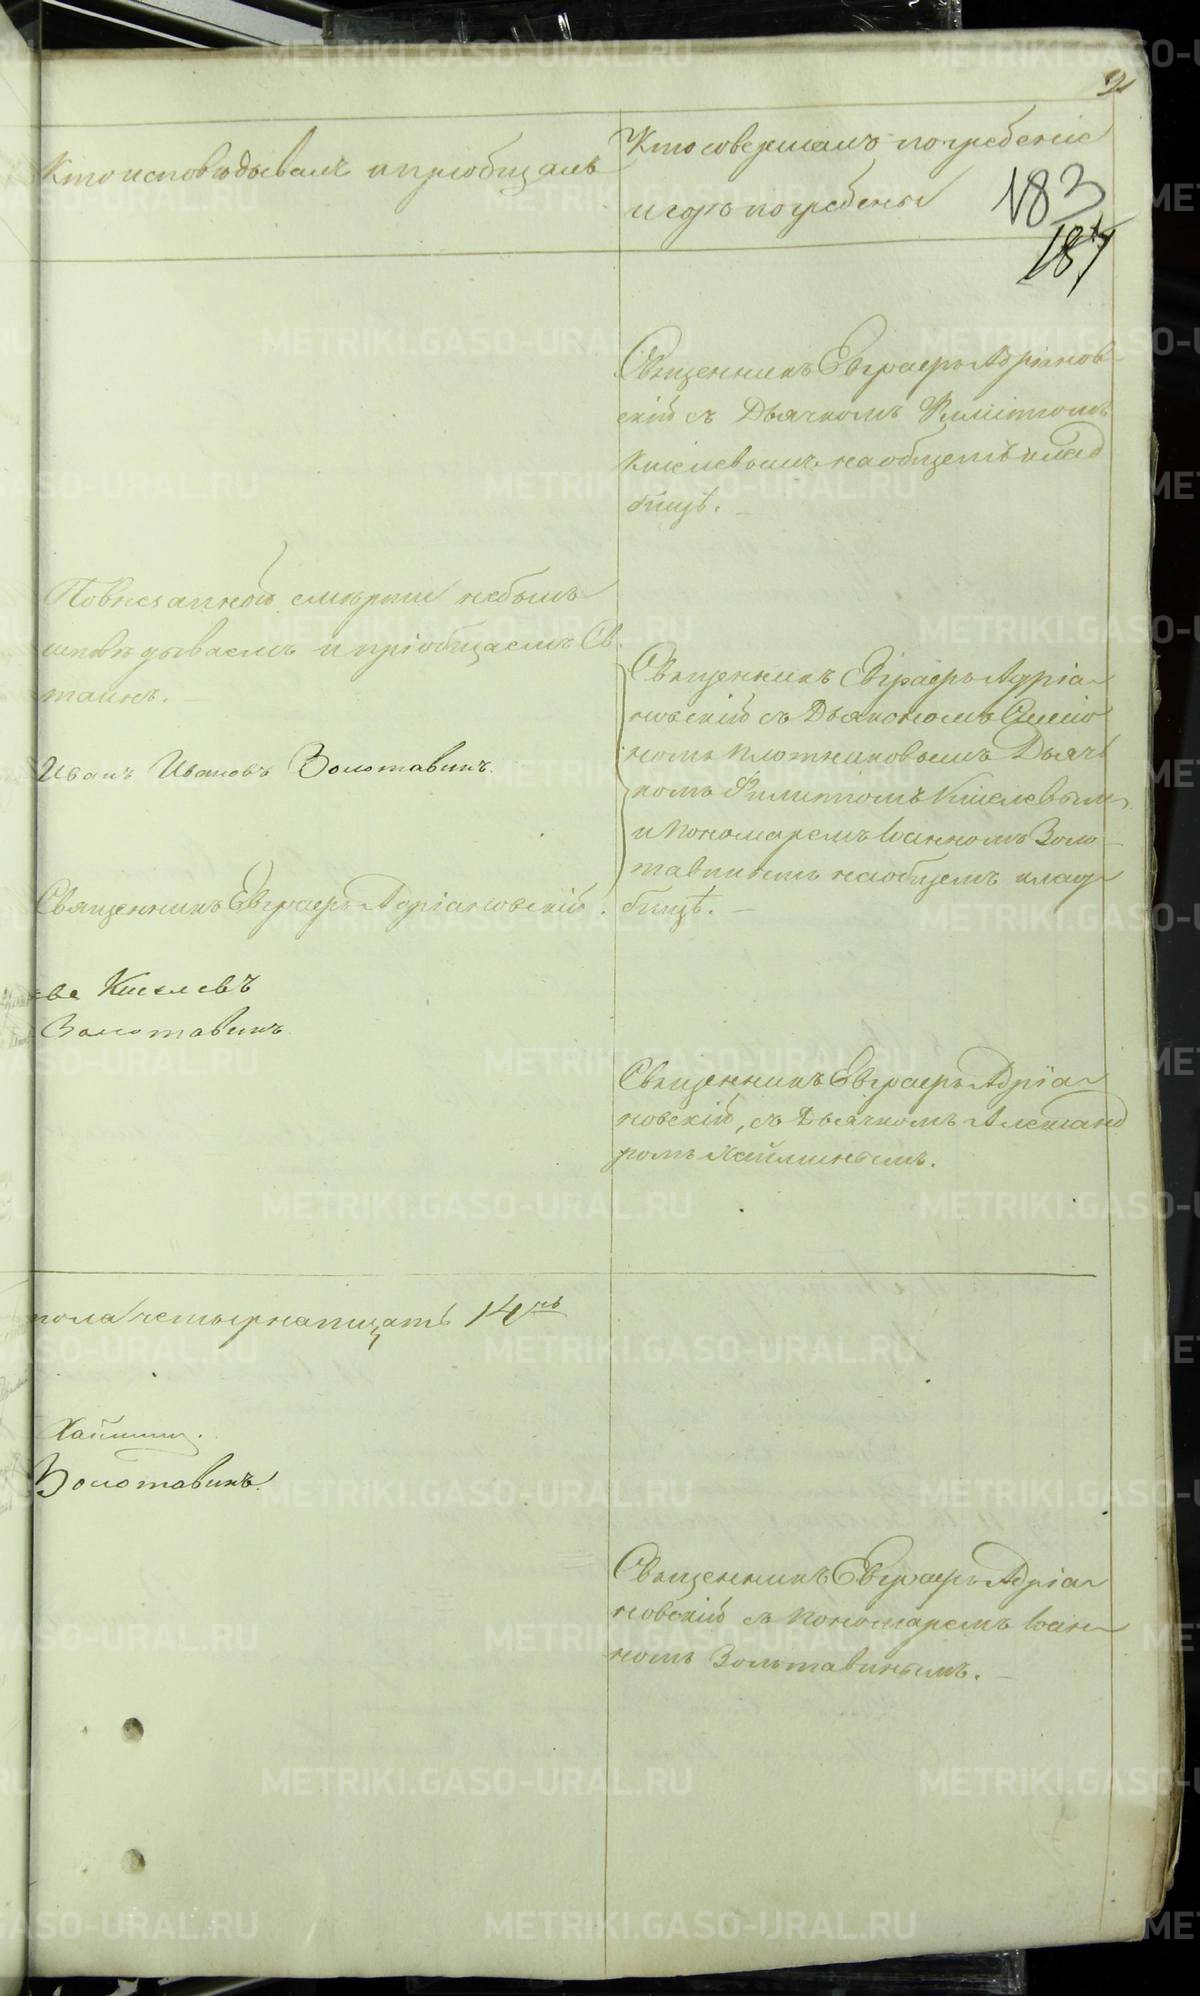 Кто исповѣдывалъ и пріобщалъ
Кто совершалъ погребеніе
и гдѣ погребены
183
187
Священникъ Евграфъ Адріанов-
скій съ Дьячкомъ Филиппомъ
Киселевымъ на общемъ клад
бищѣ. –
По внезапной смѣрти небылъ
исповѣдываемъ и пріобщаемъ Св.
таинъ. –
Иванъ Ивановъ Золотавинъ.
Священникъ Евграфъ Адріановскій.
Священникъ Евграфъ Адріа-
новскій съ Дьякономъ Симео
номъ Плотниковымъ Дьяч
комъ Филиппомъ Киселевым
и Пономаремъ Іоанномъ Золо-
тавинымъ на общемъ клад-
бищѣ. –
ва Киселевъ
Золотавинъ
Священникъ Евграфъ Адріа-
новскій, съ Дьячкомъ Александ
ромъ Хайминымъ.
пола четырнатцать 14ть
Хаймин.
Золотавинъ.
Священникъ Евграфъ Адріа-
новскій съ Пономаремъ Іоан-
номъ Золотавинымъ. –
METRIKI.GASO-URAL.RU